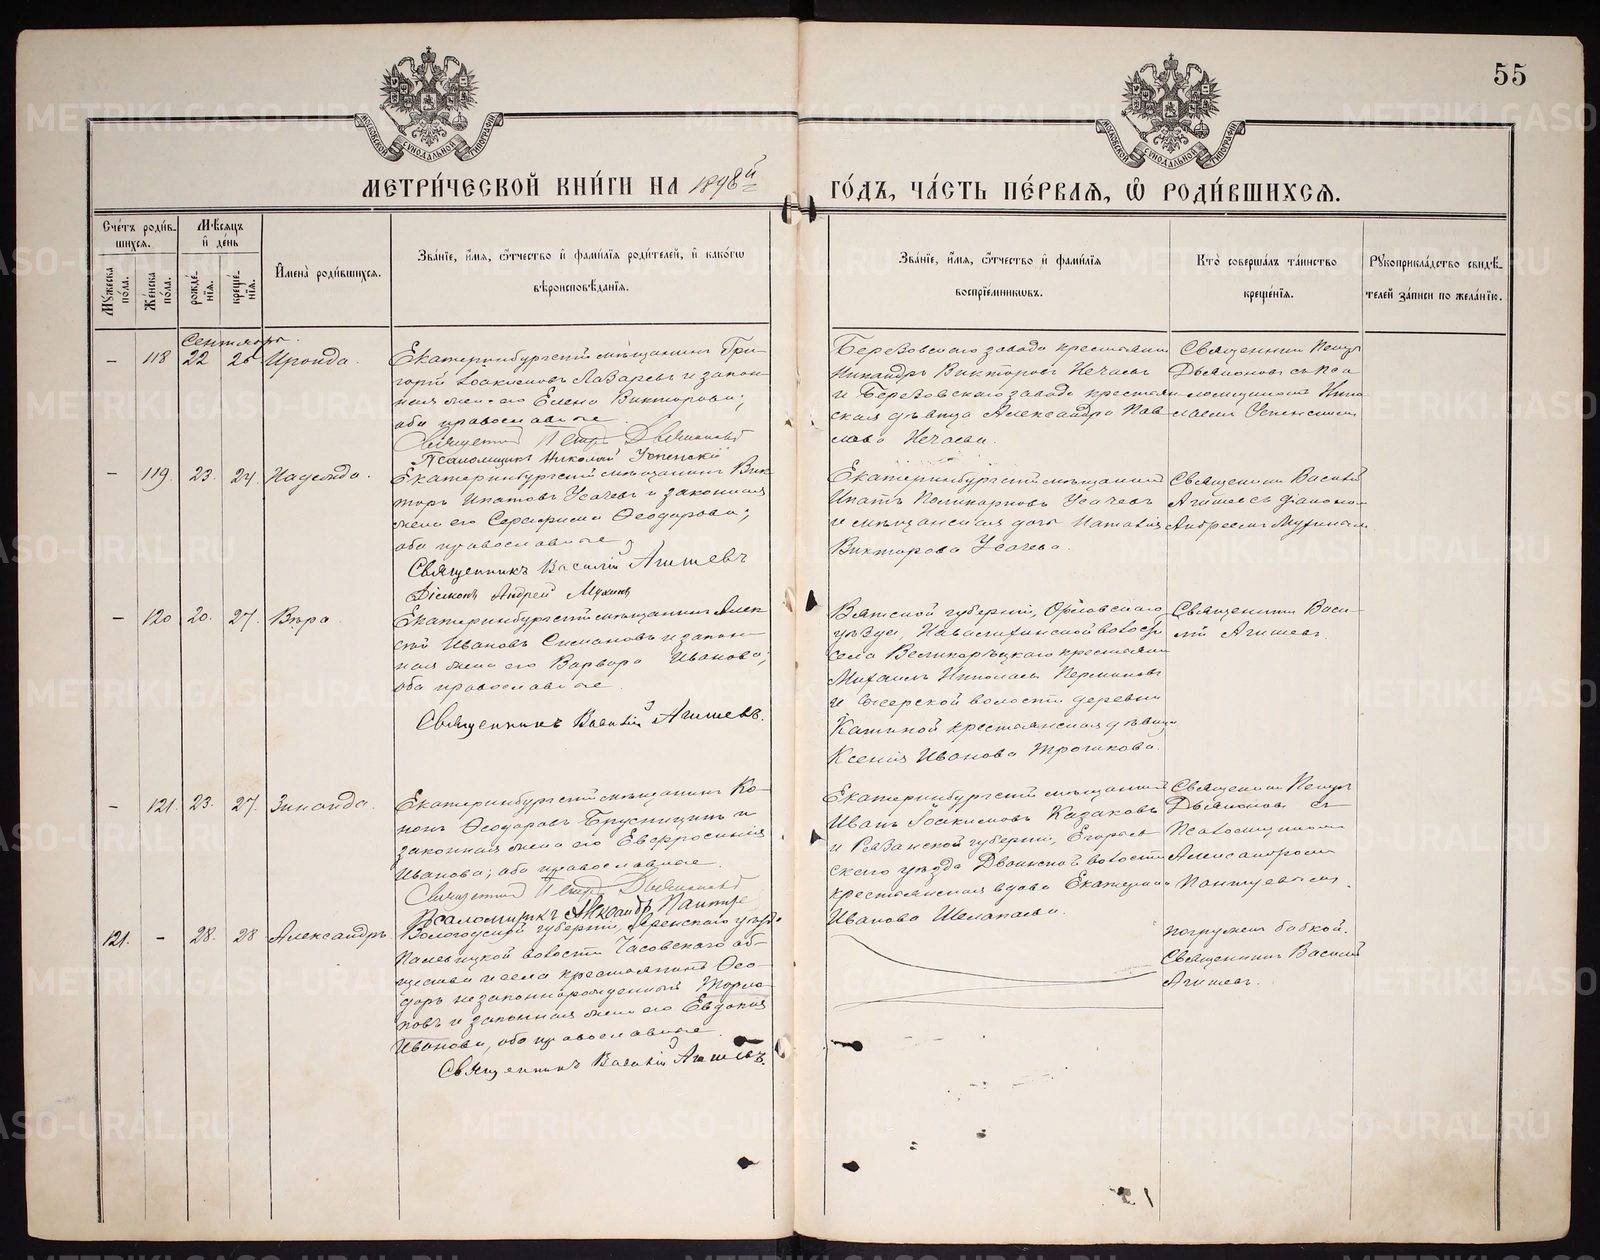 55
МЕТРИ́ЧЕСКОЙ КНИ́ГИ НА 1898й
ГО́ДЪ, ЧА́СТЬ ПЕ́РВАЯ, Ѡ҆ РОДИ́ВШИХСЯ.
МОСКОВСКОЙ СѴНОДАЛЬНОЙ ТИПОГРАФІИ
МОСКОВСКОЙ СѴНОДАЛЬНОЙ ТИПОГРАФІИ
Сче́тъ роди́в-
шихся.
Мѣсяцъ
и҆ де́нь
Мꙋжеска по́ла.
Же́нска по́ла.
рожде́-
нїя.
креще́-
нїя.
И҆мена̀ роди́вшихся.
Зва́нїе, и҆́мя, ѻ҆́тчество и҆ фами́лїя роди́телей, и҆ како́гѡ
вѣроисповѣ́данїя.
Зва́нїе, и҆́мя, ѻ҆́тчество и҆ фами́лїя
воспрїе́мникѡвъ.
Кто̀ соверша́лъ та́инство
креще́нїя.
Рꙋкоприкла́дство свидѣ́-
телей за́писи по жела́нїю.
Сентябрь.
– 118 22 26 Ираида.
Екатеринбургскій мѣщанинъ Гри-
горій Іоакимовъ Лазаревъ и закон-
ная жена его Елена Викторова;
оба православные.
Священникъ Петръ Дьяконовъ
Псаломщикъ Николай Успенскій
Березовскаго завода крестьянинъ
Никандръ Викторовъ Нечаевъ
и Березовскаго завода крестьян-
ская дѣвица Александра Пав-
лова Нечаева.
Священникъ Петръ
Дьяконовъ съ пса-
ломщикомъ Нико-
лаемъ Успенскимъ
– 119. 23. 24 Надежда.
Екатеринбургскій мѣщанинъ Вик-
торъ Ипатовъ Усачевъ и законная
жена его Серафима Ѳеодорова;
оба православные.
Священникъ Василій Агишевъ
Діаконъ Андрей Мухинъ
Екатеринбургскій мѣщанинъ
Ипатъ Поликарповъ Усачевъ
и мѣщанская дочь Наталія
Викторова Усачева.
Священникъ Василій
Агишевъ съ діакономъ
Андреемъ Мухинымъ
– 120 20. 27. Вѣра.
Екатеринбургскій мѣщанинъ Алек-
сѣй Ивановъ Симановъ и закон-
ная жена его Варвара Иванова;
оба православные.
Священникъ Василій Агишевъ.
Вятской губерніи, Орловскаго
уѣзда, волости
села Великорѣцкаго крестьянинъ
Михаилъ Николаевъ Перминовъ
и волости деревни
крестьянская дѣвица
Ксенія Иванова Трошкова.
Священникъ Васи-
лій Агишевъ.
– 121. 23. 27. Зинаида.
Екатеринбургскій мѣщанинъ Ко-
нонъ Ѳеодоровъ Брусницынъ и
законная жена его Евфросинія
Иванова; оба православные.
Священникъ Петръ Дьяконовъ
Псаломщикъ Александръ
Екатеринбургскій мѣщанинъ
Иванъ Іоакимовъ Казаковъ
и Рязанской губерніи, Егорьев-
скаго уѣзда волости
крестьянская вдова Екатерина
Иванова
Священникъ Петръ
Дьяконовъ съ
псаломщикомъ
Александромъ
121. – 28. 28 Александръ
Вологодской губерніи, Яренскаго уѣзда
волости Часовскаго об-
щества и села крестьянинъ Ѳео-
доръ незаконнорожденный
и законная жена его Евдокія
Иванова, оба православные.
Священникъ Василій Агишевъ.
погруженъ бабкой.
Священникъ Василій
Агишевъ.
METRIKI.GASO-URAL.RU